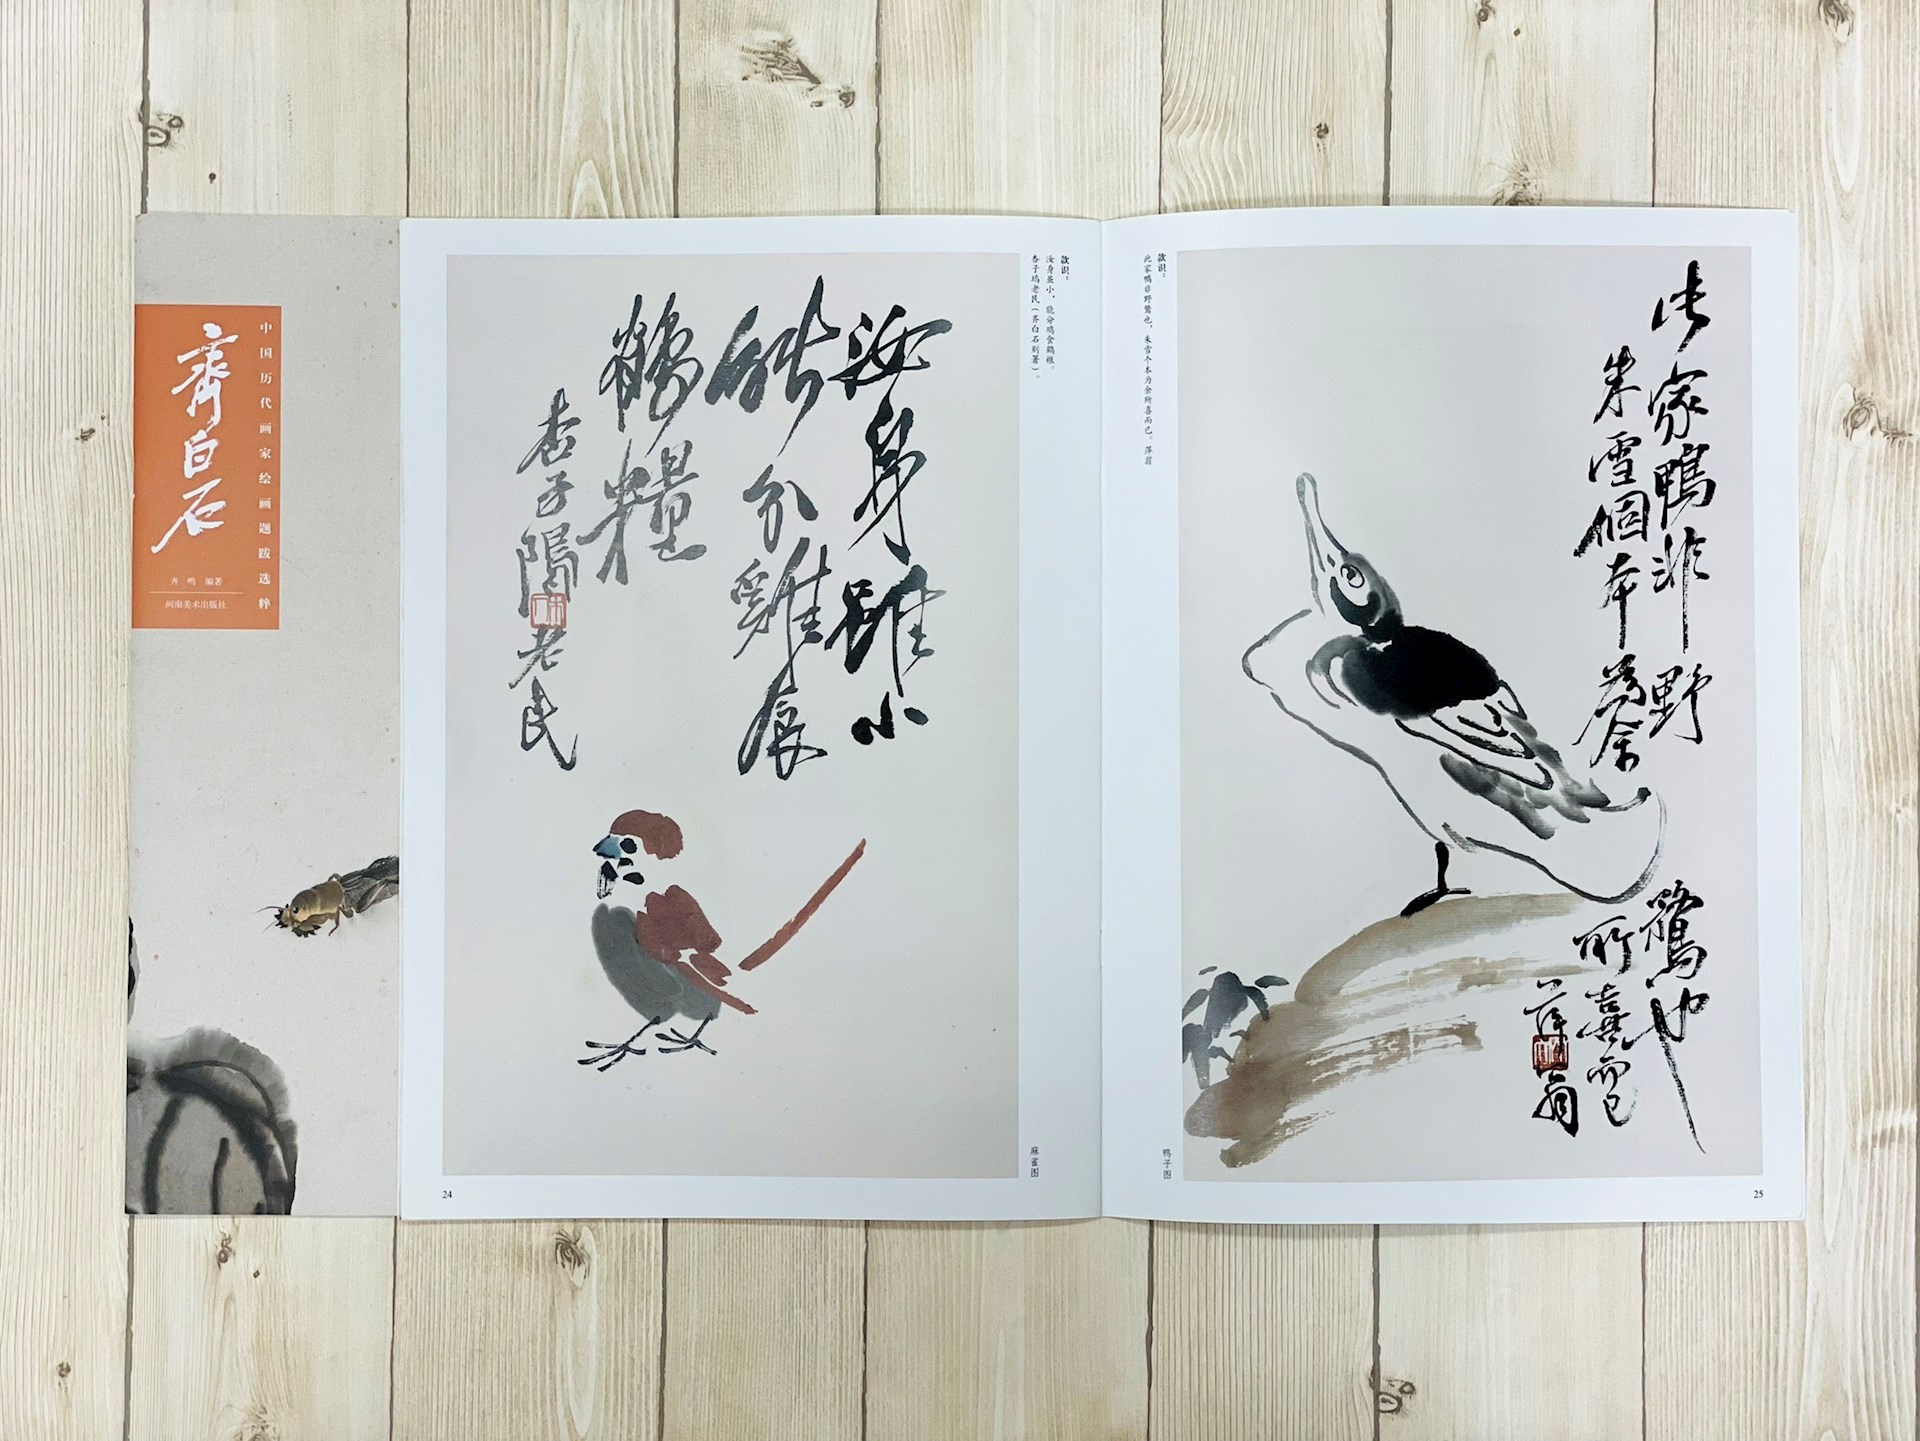 中国历代画家绘画题跋选粹
齊白石
齐鸣 编著
河南美术出版社
汝身雖小
能分雞食
鶴糧
杏子隖老民
款识：
汝身虽小，能分鸡食鹤粮。
杏子坞老民（齐白石别署）。
麻雀图
24
此家鴨非野鶩也
朱雪個本為余所喜而已
萍翁
款识：
此家鸭非野鹜也，朱雪个本为余所喜而已。萍翁
鸭子图
25